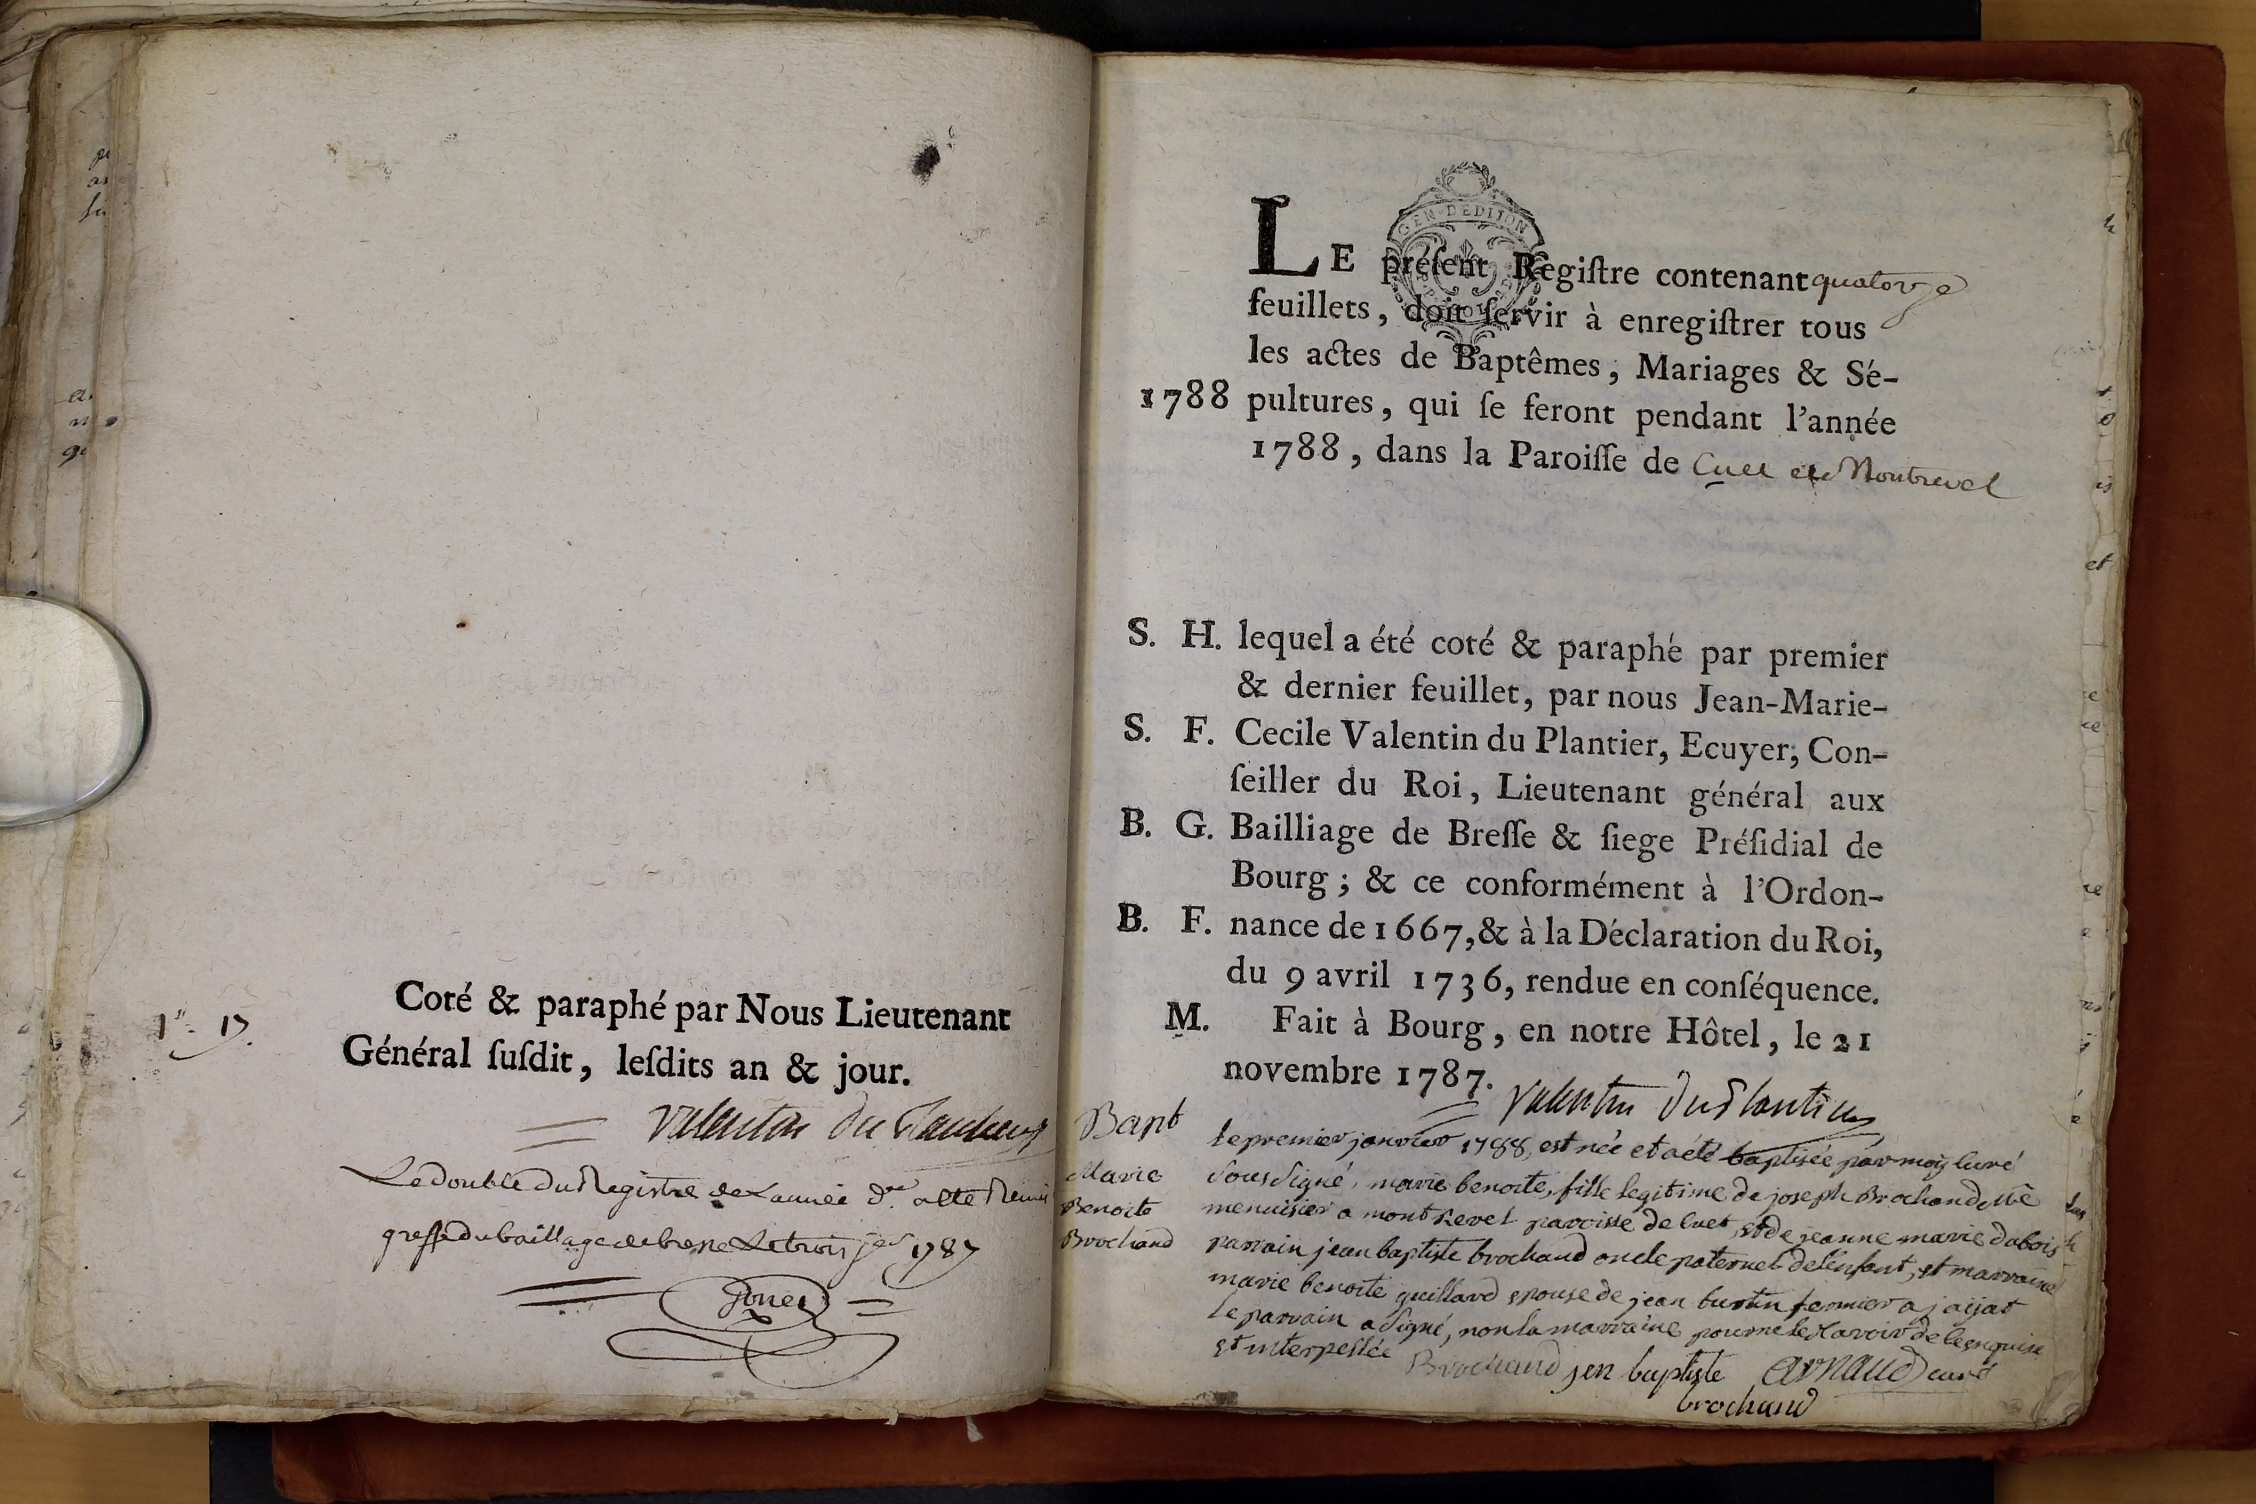 1er. 17.
Coté & paraphé par Nous Lieutenant
Général ſuſdit, leſdits an & jour.
Valentin du Plantier
Le double du Registre de L'année d.re a été Remis
greffe du bailliage de bresse Le trois jer 1787
GEN. DE DIJON
LE préſent Regiſtre contenant quatorze
feuillets, doit ſervir à enregiſtrer tous
les actes de Baptêmes, Mariages & Sé-
1788 pultures, qui ſe feront pendant l'année
1788, dans la Paroiſſe de Cuet et Montrevel
S. H. lequel a été coté & paraphé par premier
& dernier feuillet, par nous Jean-Marie-
S. F. Cecile Valentin du Plantier, Ecuyer, Con-
ſeiller du Roi, Lieutenant général aux
B. G. Bailliage de Breſſe & ſiege Préſidial de
Bourg; & ce conformément à l'Ordon-
B. F. nance de 1667, & à la Déclaration du Roi,
du 9 avril 1736, rendue en conſéquence.
M. Fait à Bourg, en notre Hôtel, le 21
novembre 1787.
Valentin Du Plantier
Bapt
Marie
Benoite
Brochand
le premier janvier 1788, est née et a été baptisée par moy curé
sousigné, marie benoite, fille legitime de joseph Brochand me
menuisier a montrevel paroisse de cuet, et de jeanne marie dubois
parrain jean baptiste brochand oncle paternel de l'enfant, et marraine
marie benoite guillard epouse de jean burtin fermier a jaijat
le parrain a signé, non la marraine pour ne le savoir de ce enquise
et interpellée Brochand jen baptiste arnaud curé
brochand